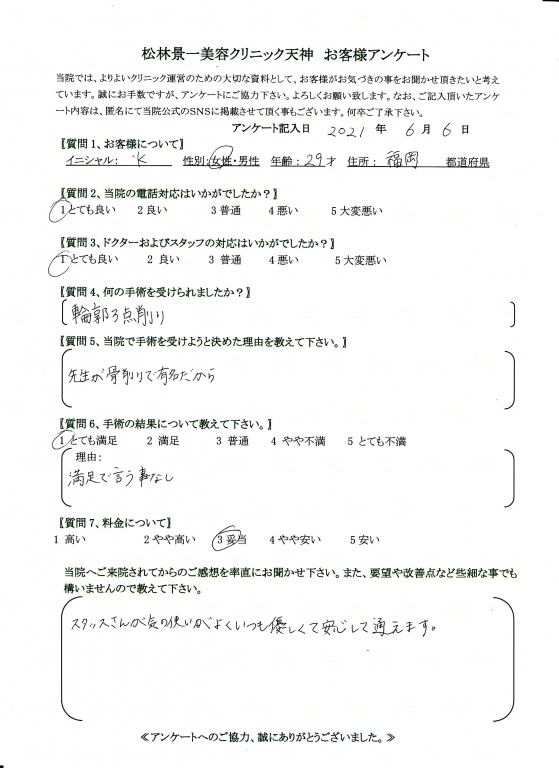 松林景一美容クリニック天神　お客様アンケート
当院では、よりよいクリニック運営のための大切な資料として、お客様がお気づきの事をお聞かせ頂きたいと考え
ています。誠にお手数ですが、アンケートにご協力下さい。よろしくお願い致します。なお、ご記入頂いたアンケ
ート内容は、匿名にて当院公式のSNSに掲載させて頂く事もございます。何卒ご了承下さい。
アンケート記入日　2021　年　6　月　6　日
【質問1、お客様について】
イニシャル：　K　性別：女性・男性　年齢：29才　住所：　福岡　都道府県
【質問2、当院の電話対応はいかがでしたか？】
1とても良い　2 良い　3 普通　4 悪い　5 大変悪い
【質問3、ドクターおよびスタッフの対応はいかがでしたか？】
1とても良い　2 良い　3 普通　4 悪い　5 大変悪い
【質問4、何の手術を受けられましたか？】
輪郭3点削り
【質問5、当院で手術を受けようと決めた理由を教えて下さい。】
先生が骨削りで有名だから
【質問6、手術の結果について教えて下さい。】
1 とても満足　2 満足　3 普通　4 やや不満　5 とても不満
理由：
満足で言う事なし
【質問7、料金について】
1 高い　2 やや高い　3 妥当　4 やや安い　5 安い
当院へご来院されてからのご感想を率直にお聞かせ下さい。また、要望や改善点など些細な事でも
構いませんので教えて下さい。
スタッスさんが気の使いがよくいつも優しくて安心して通えます。
≪アンケートへのご協力、誠にありがとうございました。≫